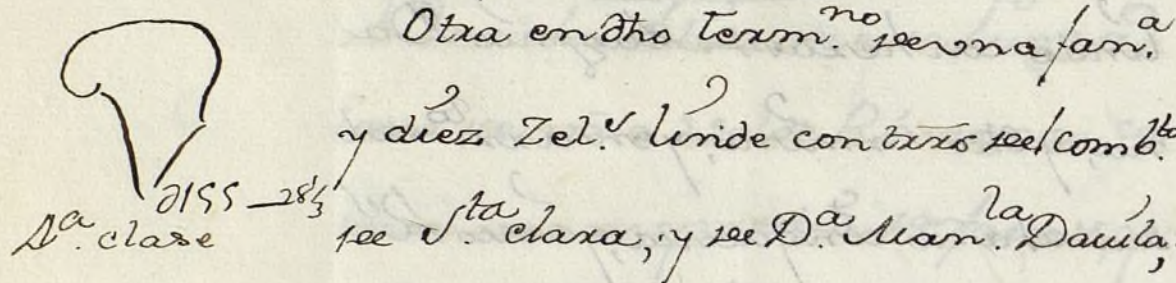 Otra en dho Term.no de vna fan.a
y diez Zel.s linde con trrs del comb.to
de S.ta clara, y de D.a Man.la Dauila,
155—28⅓
clase